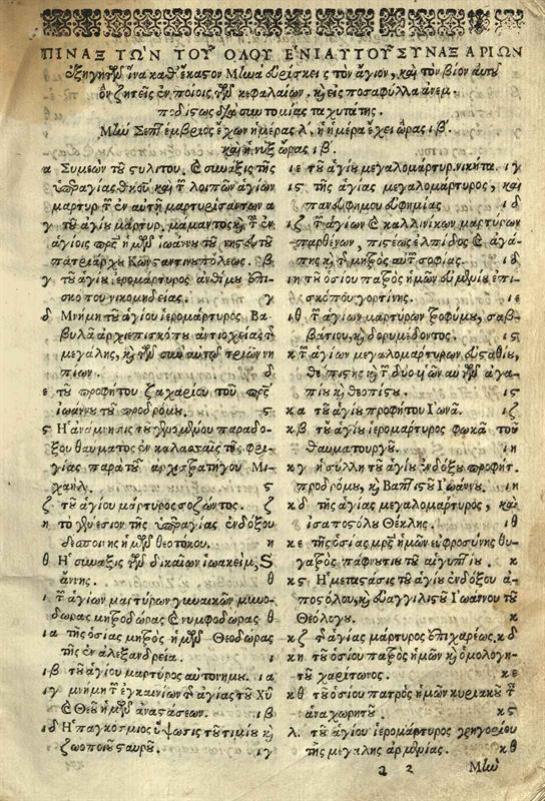 ΠΙΝΑΞ ΤΩΝ ΤΟΥ ΟΛΟΥ ΕΝΙΑΥΤΟΥ ΣΥΝΑΞΑΡΙΩΝ
ἵνα καθ' ἕκαστον Μῆνα εὑρίσκεις τὸν ἅγιον, καὶ τὸν βίον αὐτοῦ
ὃν ζητεῖς ἐν ποίοις τῶν κεφαλαίων, κ εἰς πόσα φύλλα
διὰ συντομίας ταχυτάτης.
Μὴν Σεπτέμβριος ἔχων ἡμέρας λ, ἡ ἡμέρα ἔχει ὥρας ιβ'.
καὶ ἡ νὺξ ὥρας ιβ'.
α Συμεὼν τοῦ στυλίτου. σύναξις τῆς
ὑπεραγίας θκου καὶ τῶν λοιπῶν ἁγίων
μαρτύρων τῶν ἐν αὐτῇ μαρτυρισάντων α
γ τοῦ ἁγίου μάρτυρος μάμαντος κ τοῦ ἐν
ἁγίοις πρς ἡμῶν ἰωάννου τοῦ νηστευτοῦ
πατριάρχου Κωνσταντινουπόλεως. β
γ τοῦ ἁγίου ἱερομάρτυρος ἀνθίμου ἐπι-
σκόπου νικομηδείας. γ
δ Μνήμη τοῦ ἁγίου ἱερομάρτυρος Βα-
βυλᾶ ἀρχιεπισκόπου ἀντιοχείας τῆς
μεγάλης, κ τῶν σὺν αὐτῷ τριῶν νη
πίων. δ
ε τοῦ προφήτου ζαχαρίου τοῦ πρς
ἰωάννου τοῦ προδρόμου. ς
ς Ἡ ἀνάμνησις τοῦ γενομένου παραδό-
ξου θαύματος ἐν κολασσαῖς τῆς φρυ-
γίας παρὰ τοῦ ἀρχιστρατήγου Μι-
χαήλ. ς
ζ τοῦ ἁγίου μάρτυρος σώζοντος. ζ
η τὸ γενέσιον τῆς ὑπεραγίας ἐνδόξου
δεσποίνης ἡμῶν θεοτόκου. η
θ Ἡ σύναξις τῶν δικαίων ἰωακείμ, κ
ἄννης. θ
ι τῶν ἁγίων μαρτύρων γυναικῶν μηνο-
δώρας μητροδώρας κ νυμφοδώρας θ
ια τῆς ὁσίας μητρὸς ἡμῶν Θεοδώρας
τῆς ἐν ἀλεξανδρεία. ι
ιβ τοῦ ἁγίου μάρτυρος αὐτονόμου. ια
ιγ μνήμη τῶν ἐγκαινίων τῆς ἁγίας τοῦ Χῦ
κ Θεοῦ ἡμῶν ἀναστάσεως. ιβ
ιδ Ἡ παγκόσμιος ὕψωσις τοῦ τιμίου κ
ζωοποιοῦ σταυροῦ. ιγ
ιε τοῦ ἁγίου μεγαλομάρτυρ. νικήτα. ιγ
ις τῆς ἁγίας μεγαλομάρτυρος, καὶ
πανευφήμου εὐφημίας ιδ
ιζ τῶν ἁγίων κ καλλινίκων μαρτύρων
παρθένων, πίστεως ἐλπίδος κ ἀγά-
πης κ τῆς μητρὸς αὐτῶν σοφίας. ιδ
ιη τοῦ ὁσίου πατρὸς ἡμῶν εὐμενίου ἐπι-
σκόπου γορτίνης. ιε
ιθ τῶν ἁγίων μαρτύρων τροφίμου, σαβ-
βατίου, κ δορυμέδοντος. ις
κ τῶν ἁγίων μεγαλομαρτύρων εὐσταθίου,
θεοπίστης κ τῶν δύο υἱῶν αὐτῶν ἀγα-
πίου κ θεοπίστου. ις
κα τοῦ ἁγίου προφήτου Ἰωνᾶ. ιζ
κβ τοῦ ἁγίου ἱερομάρτυρος φωκᾶ τοῦ
θαυματουργοῦ. ιη
κγ ἡ σύλληψις τοῦ ἁγίου ἐνδόξου προφήτ.
προδρόμου, κ Βαπτιστοῦ Ἰωάννου. ιη
κδ τῆς ἁγίας μεγαλομάρτυρος, καὶ
ἰσαποστόλου Θέκλης. ιθ
κε τῆς ὁσίας μρς ἡμῶν εὐφροσύνης θυ-
γατρὸς παφνουτίου τοῦ αἰγυπτίου. κ
κς Ἡ μετάστασις τοῦ ἁγίου ἐνδόξου ἀ-
ποστόλου, κ εὐαγγελιστοῦ Ἰωάννου τοῦ
Θεολόγου. κ
κζ τοῦ ἁγίου μάρτυρος ἐπιχαρέως. κδ
κη τοῦ ὁσίου πατρὸς ἡμῶν κ ὁμολογη-
τοῦ χαρίτωνος. κε
κθ τοῦ ὁσίου πατρὸς ἡμῶν κυριακοῦ τοῦ
ἀναχωρητοῦ. κς
λ. τοῦ ἁγίου ἱερομάρτυρος γρηγορίου
τῆς μεγάλης ἀρμενίας. κθ
a 2 Μὴν